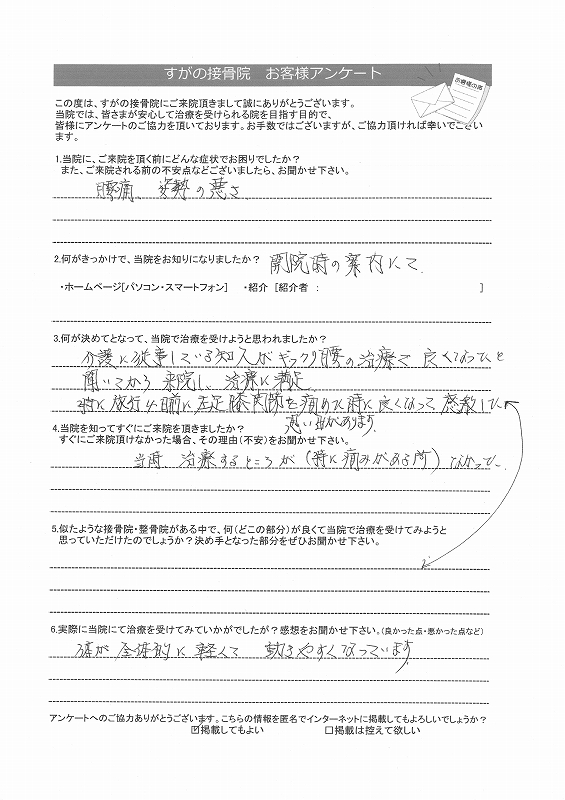 すがの接骨院 お客様アンケート
お客様の声
この度は、すがの接骨院にご来院頂きまして誠にありがとうございます。
当院では、皆さまが安心して治療を受けられる院を目指す目的で、
皆様にアンケートのご協力を頂いております。お手数ではございますが、ご協力頂ければ幸いでござい
ます。
1.当院に、ご来院を頂く前にどんな症状でお困りでしたか？
また、ご来院される前の不安点などございましたら、お聞かせ下さい。
腰痛、姿勢の悪さ
2.何がきっかけで、当院をお知りになりましたか？ 開院時の案内にて
・ホームページ[パソコン・スマートフォン] ・紹介 [紹介者 : ]
3.何が決めてとなって、当院で治療を受けようと思われましたか？
介護に従事している知人がギックリ腰の治療で良くなったと
聞いてから来院し、治療に満足
特に旅行以前に左足膝関節を痛めた時に良くなって感激した
思い出があります
4.当院を知ってすぐにご来院頂きましたか？
すぐにご来院頂けなかった場合、その理由(不安)をお聞かせ下さい。
当時 治療するところが(特に痛みがある所)なかった
5.似たような接骨院・整骨院がある中で、何(どこの部分)が良くて当院で治療を受けてみようと
思っていただけたのでしょうか？決め手となった部分をぜひお聞かせ下さい。
6.実際に当院にて治療を受けてみていかがでしたか？感想をお聞かせ下さい。(良かった点・悪かった点など)
体が全体的に軽くて 動きやすくなっています
アンケートへのご協力ありがとうございます。こちらの情報を匿名でインターネットに掲載してもよろしいでしょうか？
☑掲載してもよい □掲載は控えて欲しい